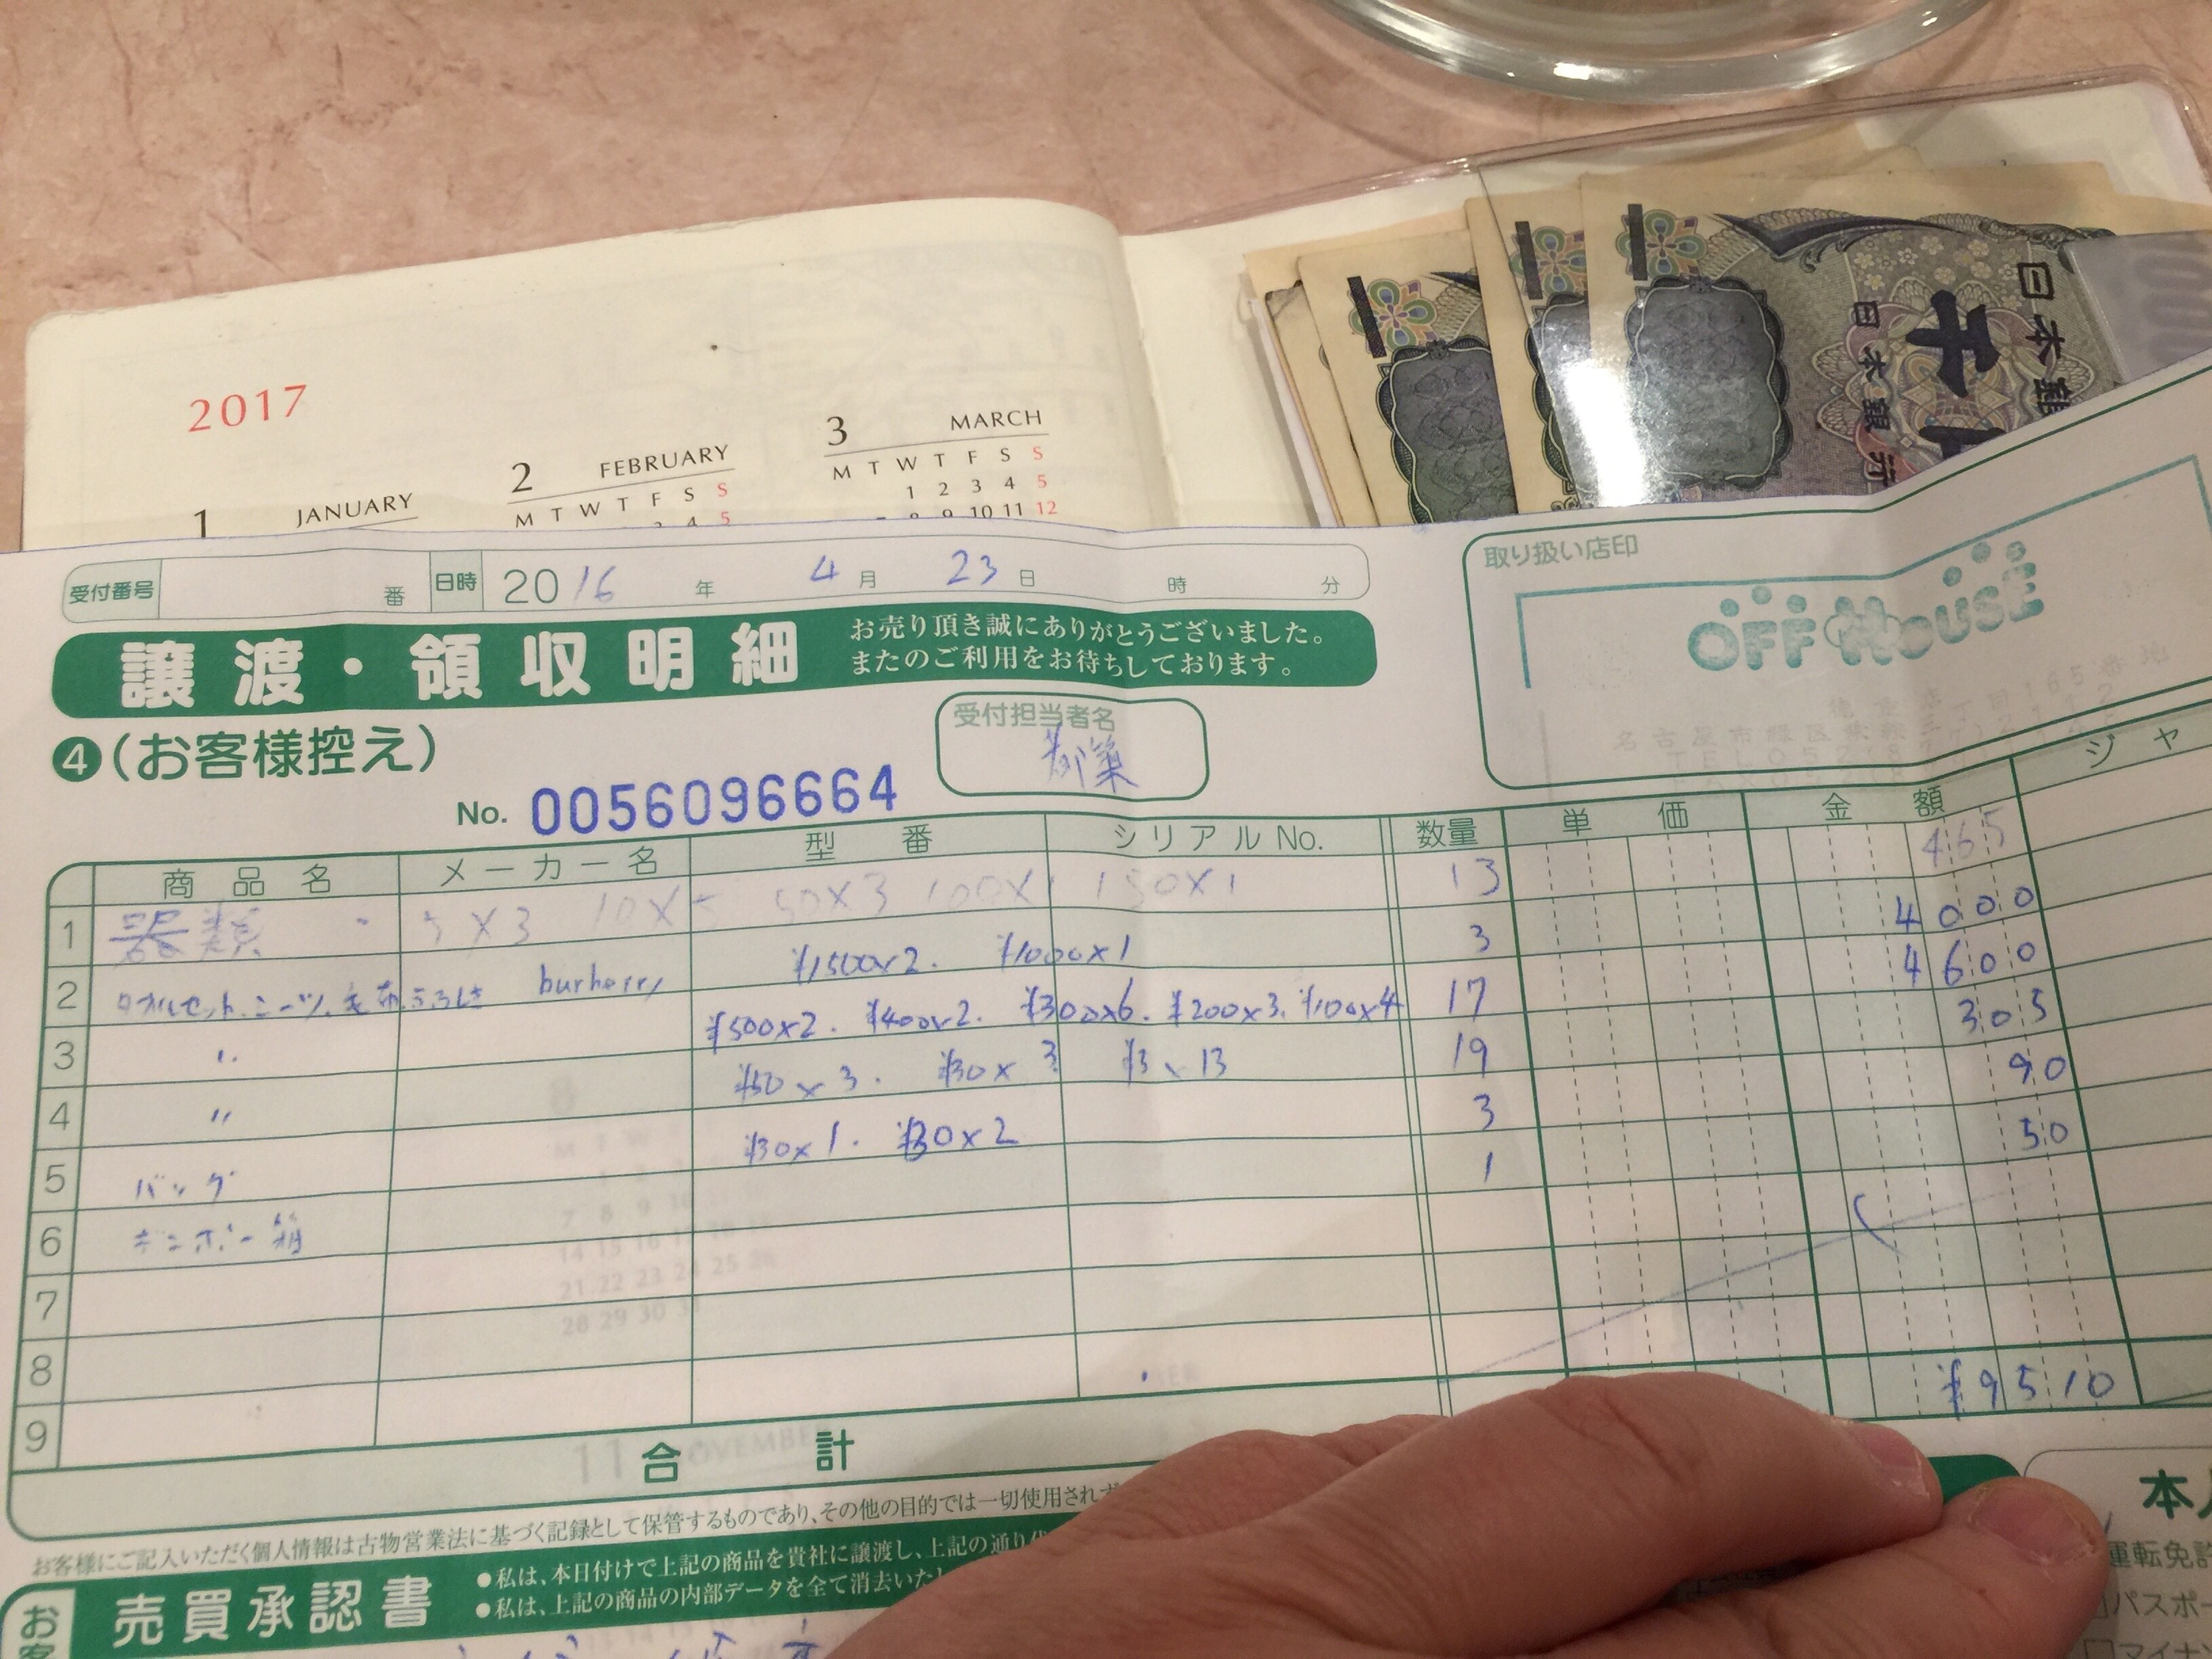 2017
1 JANUARY
2 FEBRUARY
M T W T F S S
3 4 5
3 MARCH
M T W T F S S
1 2 3 4 5
8 9 10 11 12
日本銀
千
日本銀行
受付番号 番 日時 2016年 4月 23日 時 分
取り扱い店印
OFF HOUSE
譲渡・領収明細
お売り頂き誠にありがとうございました。
またのご利用をお待ちしております。
❹(お客様控え)
受付担当者名
都築
No. 0056096664
商品名 メーカー名 型番 シリアルNo. 数量 単価 金額 ジャ
1 器類 5×3 10×5 50×3 100×1 150×1 13 465
2 burberry ¥1500×2. ¥1000×1 3 4000
3 〃 ¥500×2. ¥400×2. ¥300×6. ¥200×3. ¥100×4 17 4600
4 〃 ¥50×3. ¥30×3 19 305
5 バッグ ¥30×1. ¥30×2 3 90
6 1 50
7
8
9
合計 ¥9510
お客様にご記入いただく個人情報は古物営業法に基づく記録として保管するものであり、その他の目的では一切使用されず
売買承認書
●私は、本日付けで上記の商品を貴社に譲渡し、上記の通り
●私は、上記の商品の内部データを全て消去いたし
お客
本人
運転免許
パスポー
マイナン